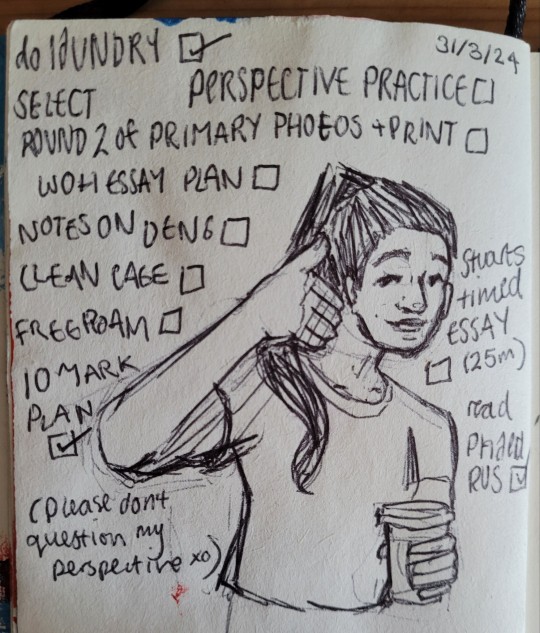 do LAUNDRY
31/3/24
PERSPECTIVE PRACTICE
SELECT
ROUND 2 of PRIMARY PHOTOS + PRINT
WOH ESSAY PLAN
NOTES ON DENG
CLEAN CAGE
FREEROAM
10 MARK
PLAN
Stuarts
timed
ESSAY
(25m)
read
PHAED
RUS
(please don't
question my
perspective xo)